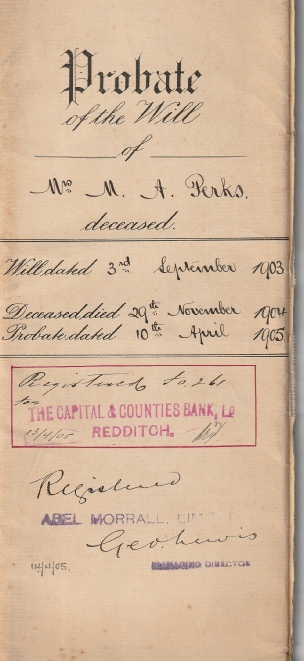 Probate
of the Will
of
Mrs M. A. Perks.
deceased.
Will dated 3rd September 1903
Deceased died 29th November 1904
Probate dated 10th April 1905.
Registered fo. 261
for
THE CAPITAL & COUNTIES BANK, Ld
13/4/05 REDDITCH.
Registered
ABEL MORRALL, LIMITED
Geo. Lewis
14/4/05. MANAGING DIRECTOR